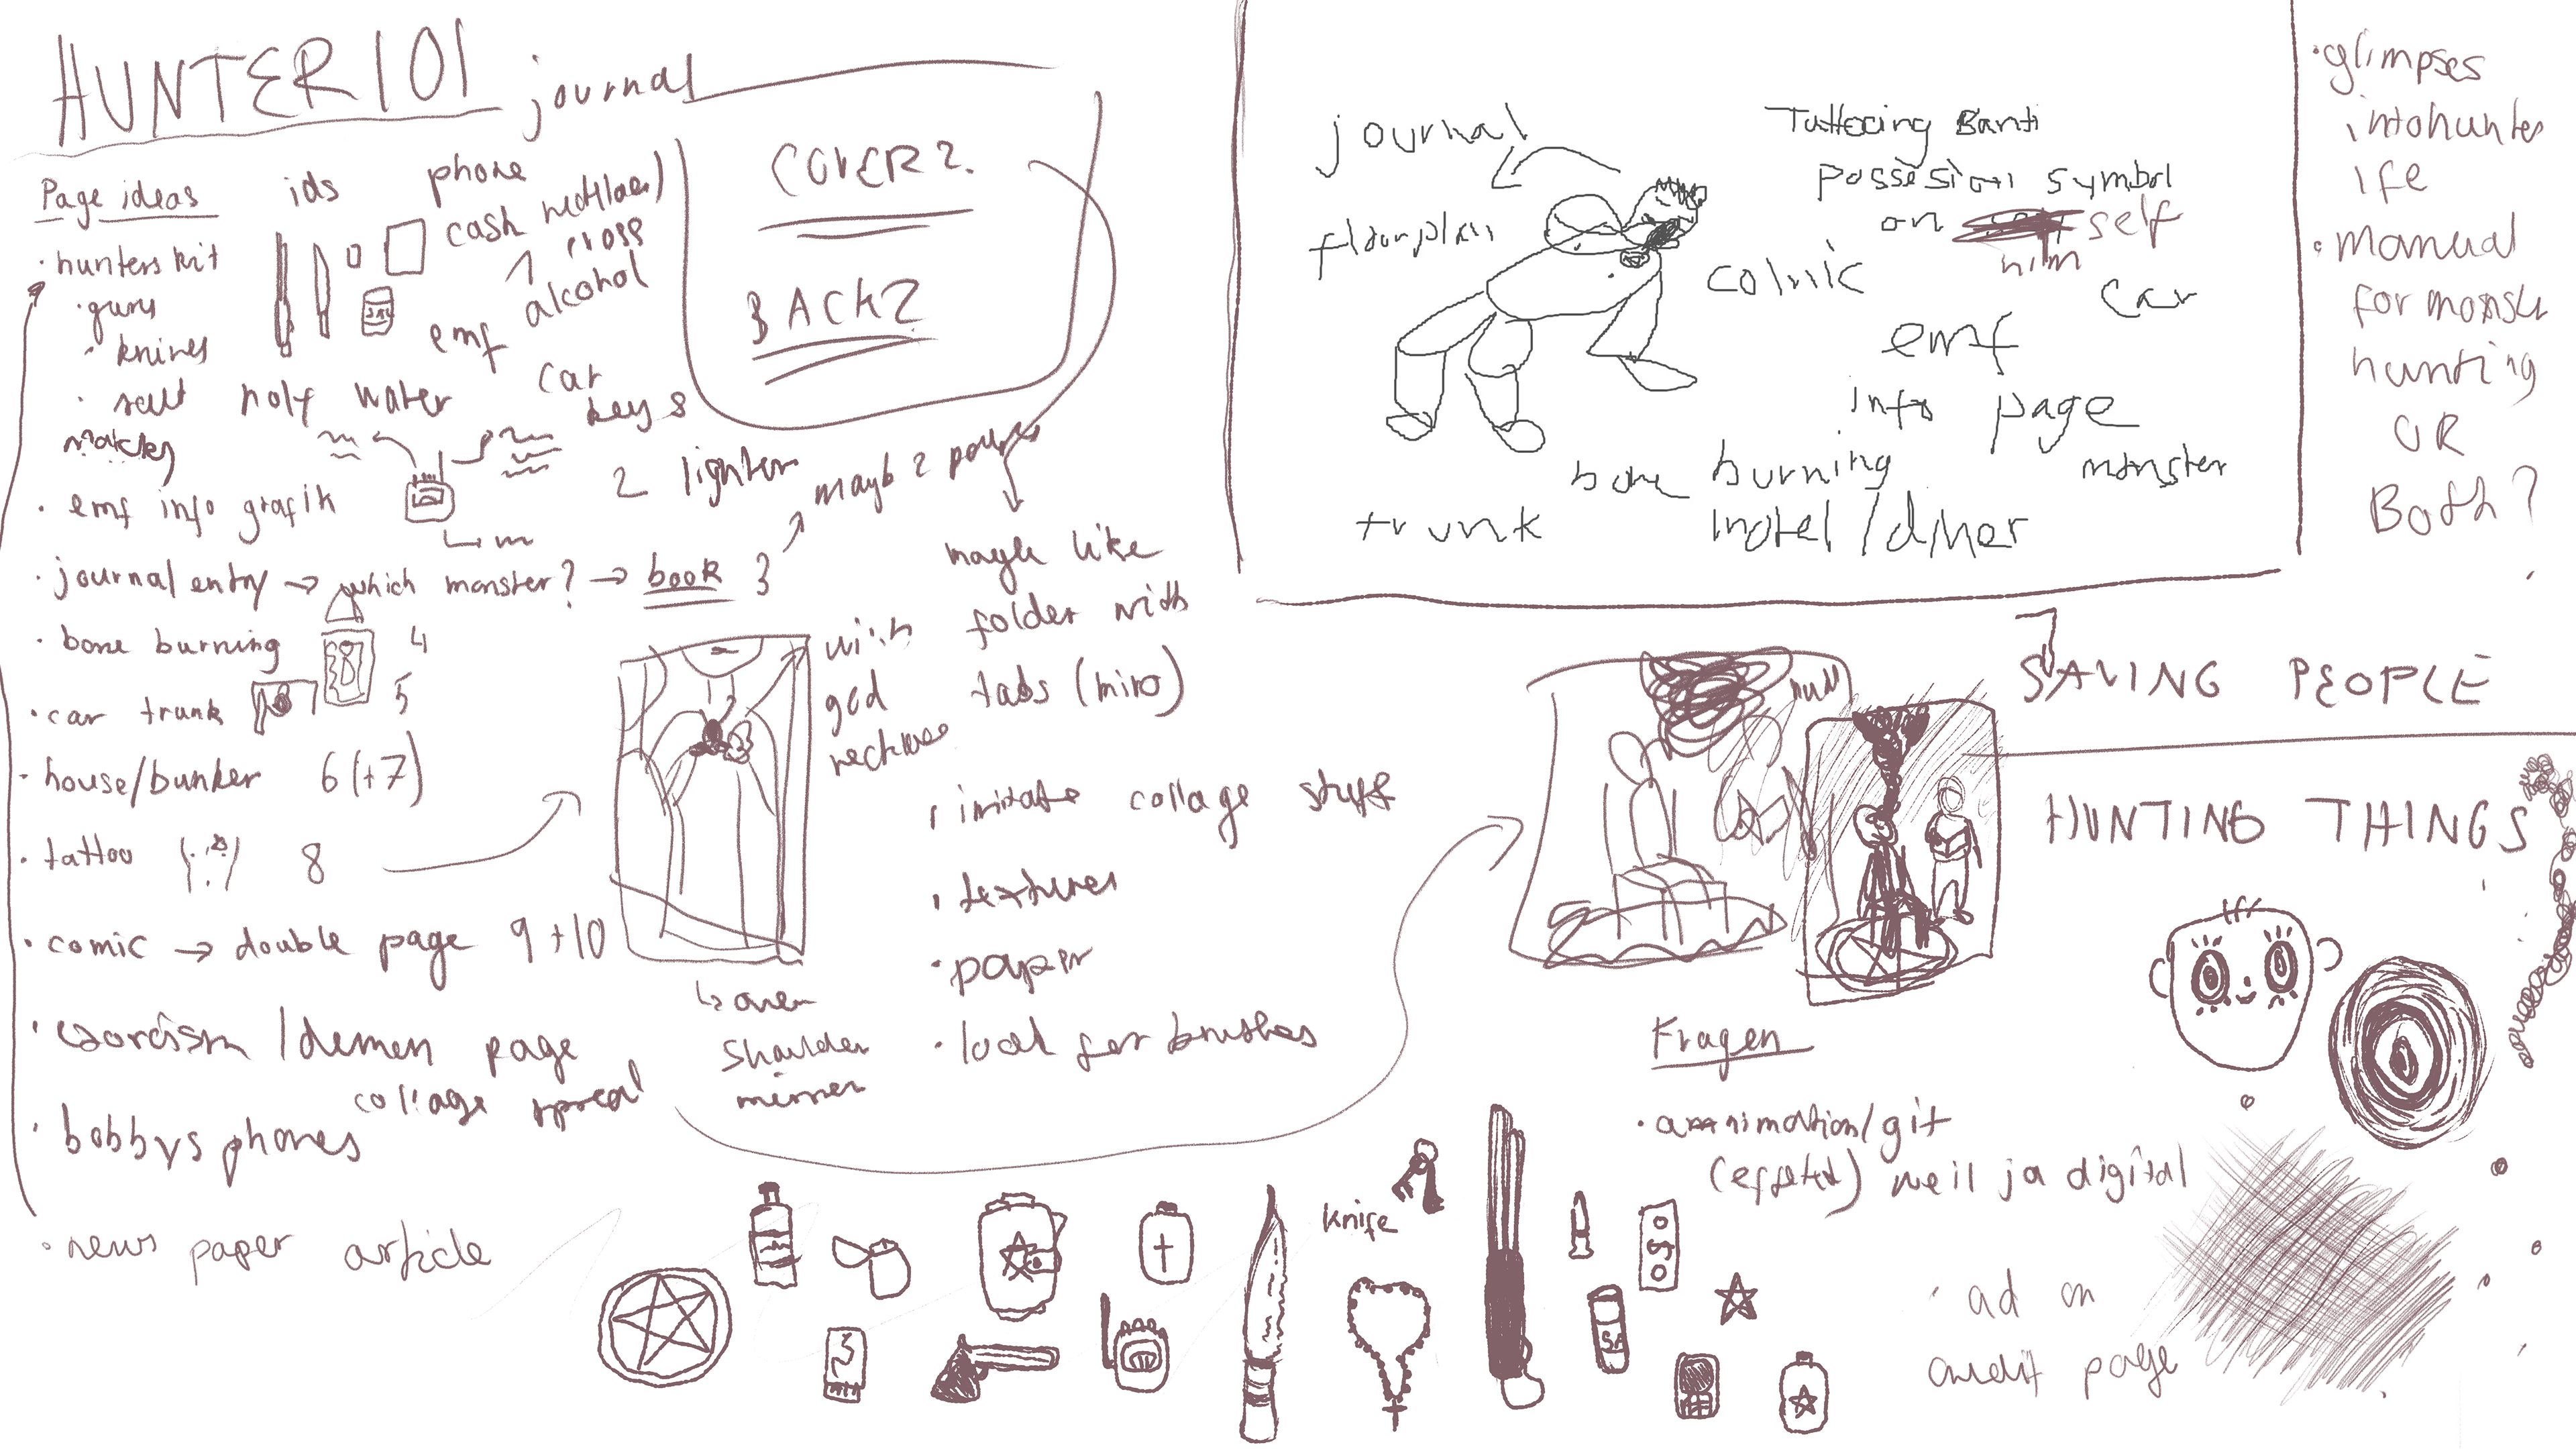 HUNTER 101
journal
Page ideas
ids
phone
cash
necklaces
cross
alcohol
emf
car
keys
2 lighter
• hunters kit
• guns
• knives
• salt holy water
• emf info grafik
• journal entry → which monster? → book 3
• bone burning 4
• car trunk 5
• house/bunker 6 (+7)
• tattoo 8
• comic → double page 9 + 10
• exorcism / demon page
collage spread
• bobbys phones
• news paper article
COVER?
BACK?
mayb 2
maybe like
folder with
tabs (miro)
with
god
over
shoulder
mirror
• imitate collage stuff
• textures
• paper
• look for brushes
journal
floorplan
Tattooing Santi
possesion symbol
on self
him
comic
car
emf
info page
bone burning
monster
trunk
motel / diner
• glimpses
into hunter
life
• manual
for monster
hunting
OR
Both?
SAVING PEOPLE
HUNTING THINGS
Fragen
(effekt) weil ja digital
• ad on
page
knife